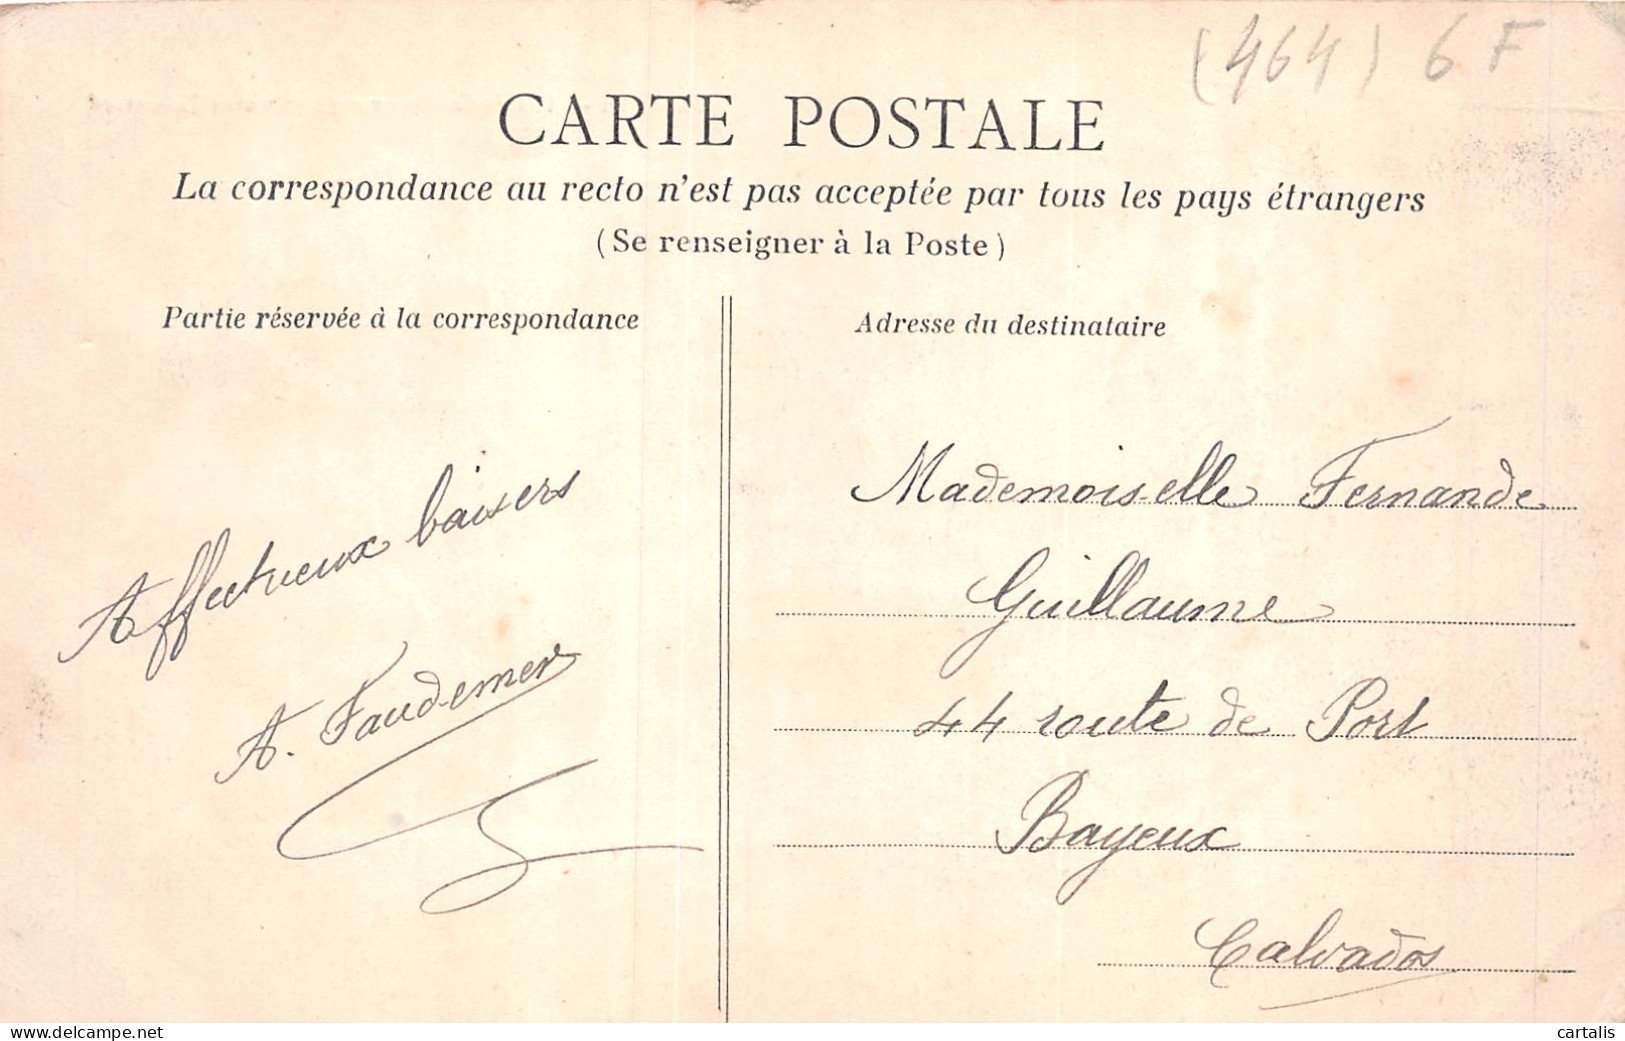 (464) 6 F
CARTE POSTALE
La correspondance au recto n'est pas acceptée par tous les pays étrangers
(Se renseigner à la Poste)
Partie réservée à la correspondance
Affectueux baisers
A. Faudemer
Adresse du destinataire
Mademoiselle Fernande
Guillaume
44 route de Port
Bayeux
Calvados
www.delcampe.net
cartalis